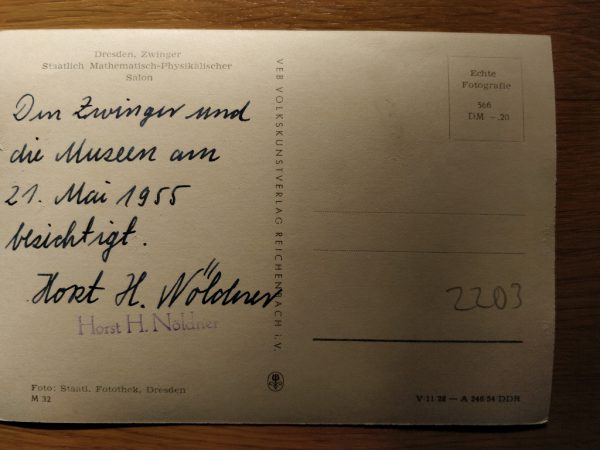 Dresden, Zwinger
Staatlich Mathematisch-Physikalischer
Salon
Den Zwinger und
die Museen am
21. Mai 1955
besichtigt.
Horst H. Nöldner
Horst H. Nöldner
Foto: Staatl. Fotothek, Dresden
M 32
VEB VOLKSKUNSTVERLAG REICHENBACH i. V.
Echte
Fotografie
366
DM -.20
2203
V·11·28 — A 246/54 DDR